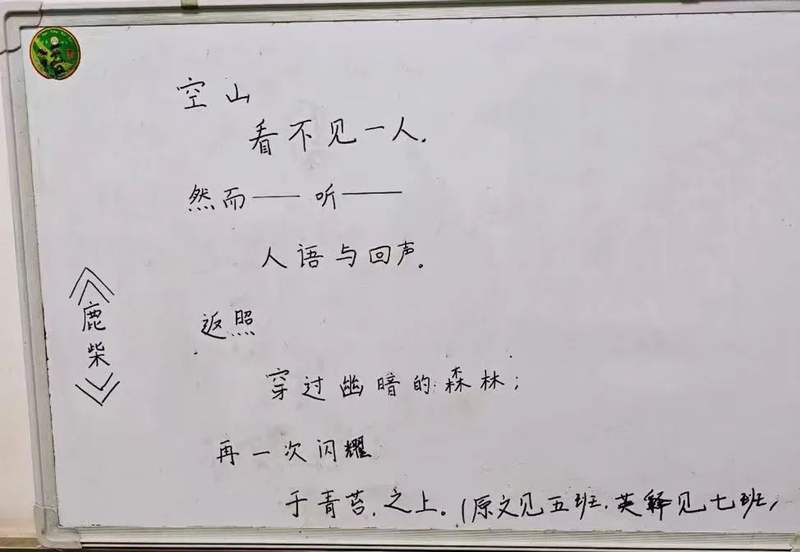 语
空山
看不见一人.
然而——听——
人语与回声。
《鹿柴》
返照
穿过幽暗的森林；
再一次闪耀
于青苔之上。(原文见五班.英释见七班,